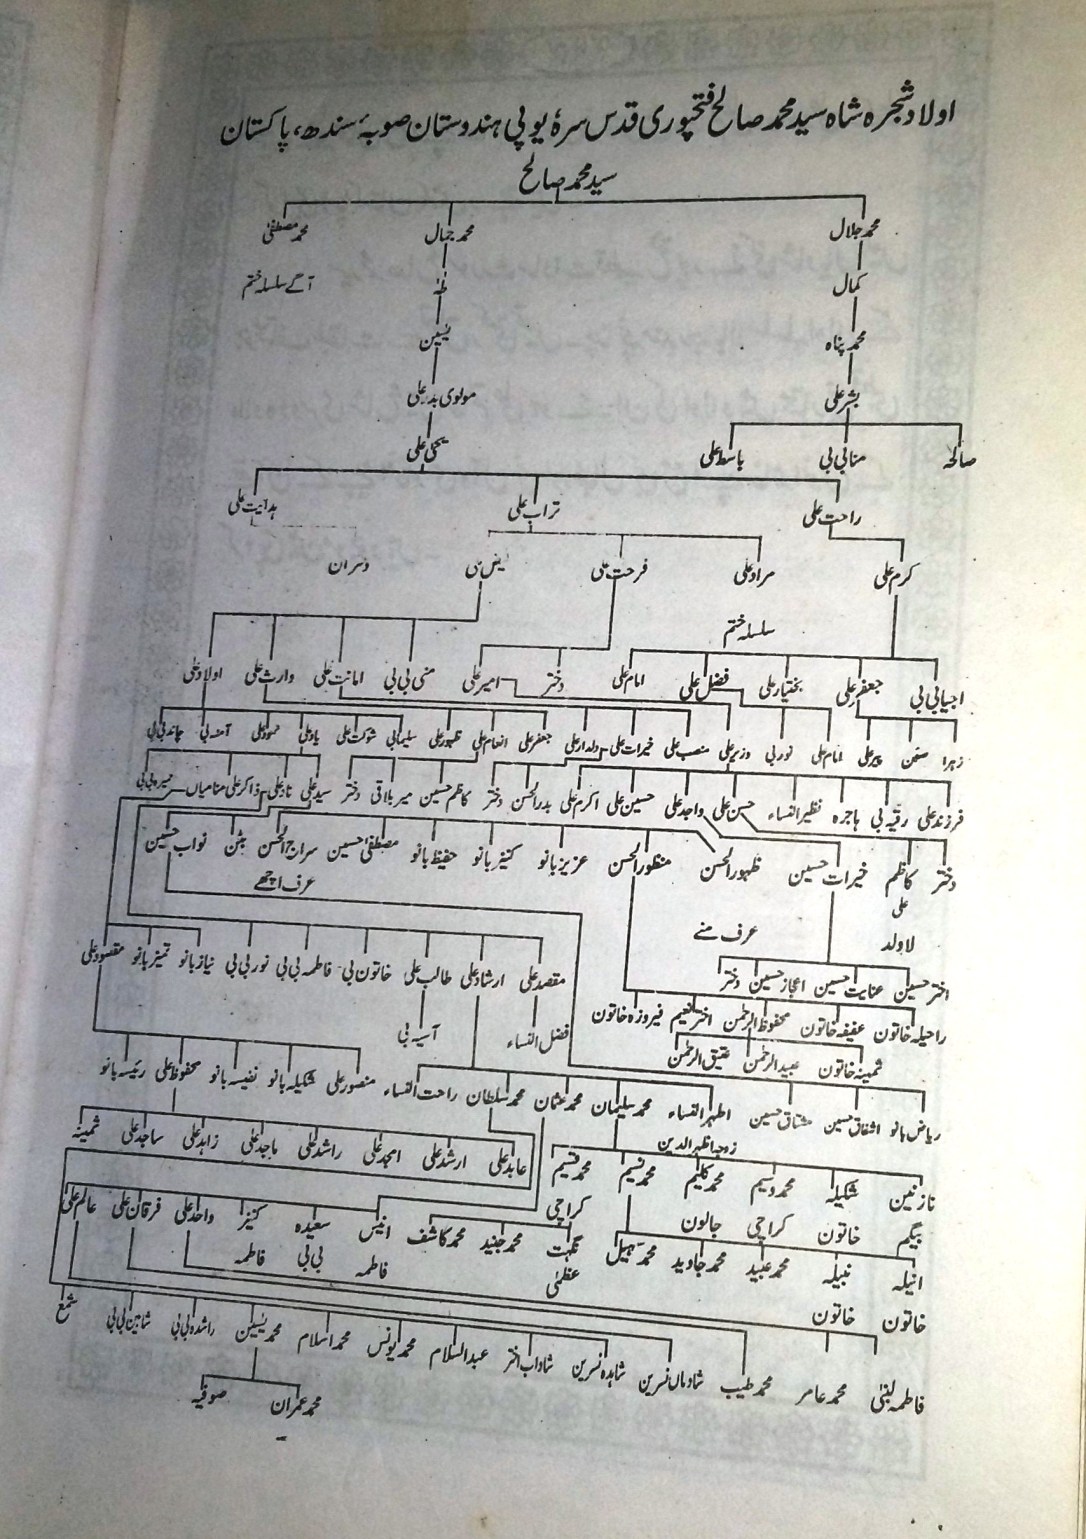 اولاد شجرہ شاہ سید محمد صالح فتحپوری قدس سرہٗ یوپی ہندوستان صوبۂ سندھ، پاکستان
سید محمد صالح
محمد جلال محمد جمال محمد مصطفیٰ
کمال طٰہٰ آگے سلسلہ ختم
محمد پناہ یٰسین
بشر علی مولوی بد علی
صالحہ منابی بی باسط علی یحیٰ علی
راحت علی تراب علی ہدایت علی
کرم علی مراد علی فرحت علی
سلسلہ ختم
اجیابی بی جعفر علی بختیار علی فضل علی امام علی دختر امیر علی منی بی بی امانت علی وارث علی اولاد علی
زہرا پیر علی امام علی نور بی وزیر علی منصب علی خیرات علی دلدار علی جعفر علی انعام علی ظہور علی شوکت علی یاد علی آمنہ بی چاند بی بی
فرزند علی رقیہ بی ہاجرہ نظیر النساء حسن علی واجد علی حسین علی اکرم علی بدر الحسن دختر کاظم حسین میر بلاقی دختر سید علی ناد علی ذاکر علی منامیاں
دختر کاظم علی خیرات حسین ظہور الحسن منظور الحسن عزیز بانو کنیز بانو حفیظ بانو مصطفیٰ حسین سراج الحسن بٹن نواب حسین
لاولد عرف منے عرف اچھے
اختر حسین عنایت حسین اعجاز حسین دختر
مقصد علی ارشاد علی طالب علی خاتون بی فاطمہ بی بی نور بی بی نیاز بانو تمیز بانو مقصود علی
راحیلہ خاتون عفیفہ خاتون محفوظ الرحمٰن اختر نعیم فیروزہ خاتون
فضل النساء آسیہ بی
ثمینہ خاتون عبید الرحمٰن عتیق الرحمٰن
منصور علی شکیلہ بانو نفیسہ بانو محفوظ علی رئیسہ بانو
ریاض بانو اشفاق حسین مشتاق حسین اطہر النساء محمد سلیمان محمد عثمان محمد سلطان راحت النساء
زوجہ اظہر الدین
عابد علی ارشد علی امجد علی راشد علی ماجد علی زاہد علی ساجد علی ثمینہ
نازنین بیگم شکیلہ خاتون محمد وسیم کراچی محمد کلیم جالون محمد نسیم محمد قسیم کراچی
انیس فاطمہ سعیدہ بی بی کنیز فاطمہ واحد علی فرقان علی عالم علی
انیلہ خاتون نبیلہ خاتون محمد عبید محمد جاوید محمد سہیل نگہت عظمیٰ محمد جنید محمد کاشف
فاطمہ لبنیٰ محمد عامر محمد طیب شادماں نسرین شاہدہ نسرین شاداب اختر عبدالسلام محمد یونس محمد اسلام محمد یٰسین راشدہ بی بی شاہین بی بی شمع
محمد عمران صوفیہ